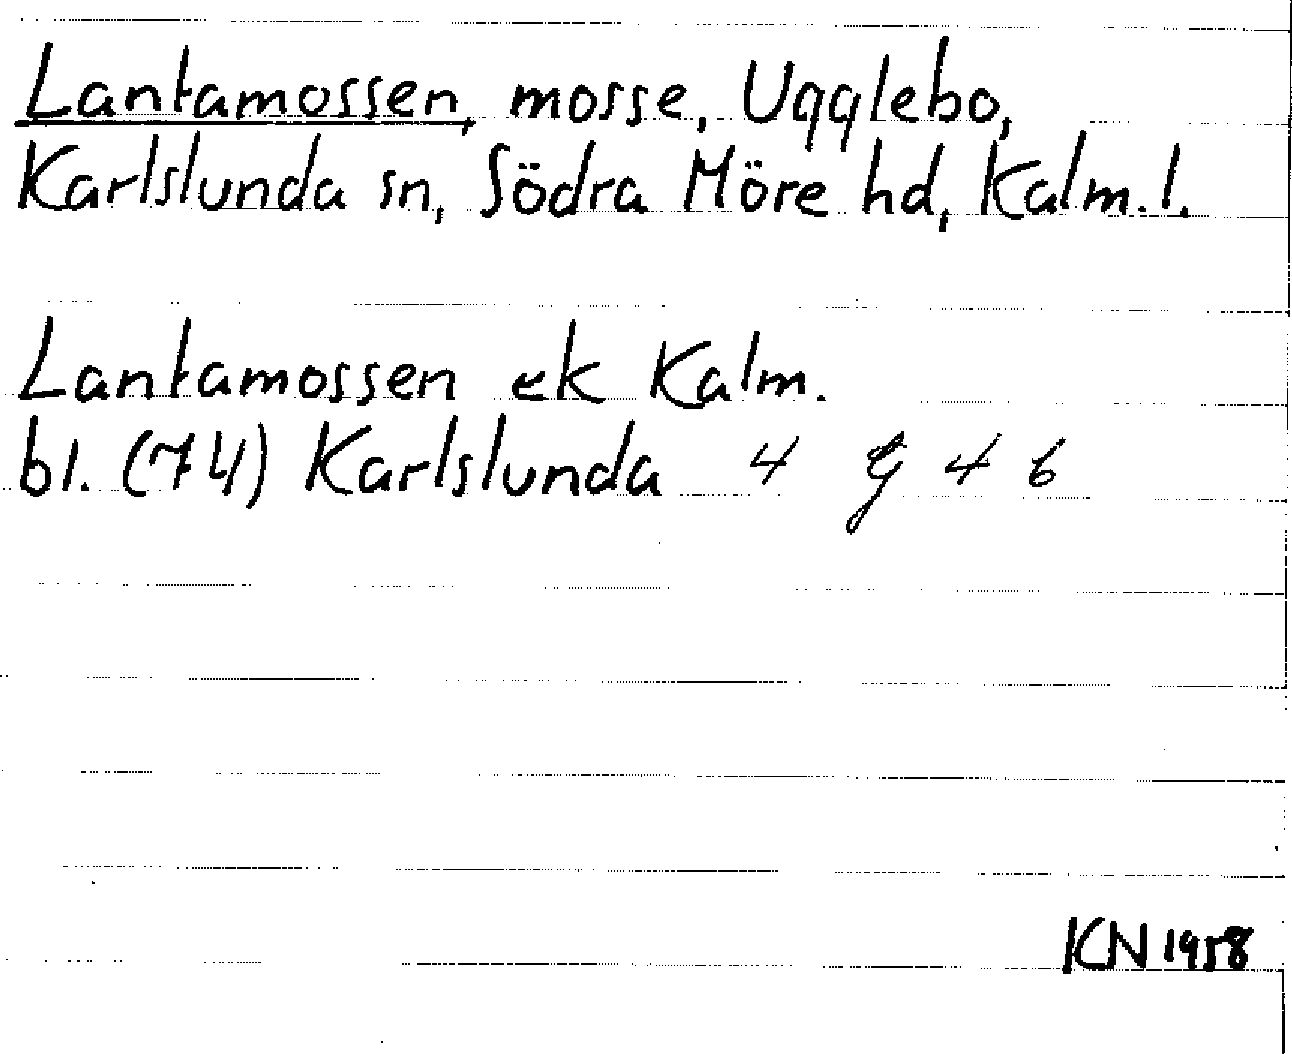 Lantamossen, mosse, Ugglebo,
Karlslunda sn, Södra Möre hd, Kalm. l.
Lantamossen ek Kalm.
bl. (74) Karlslunda 4 G 4 b
KN 1958